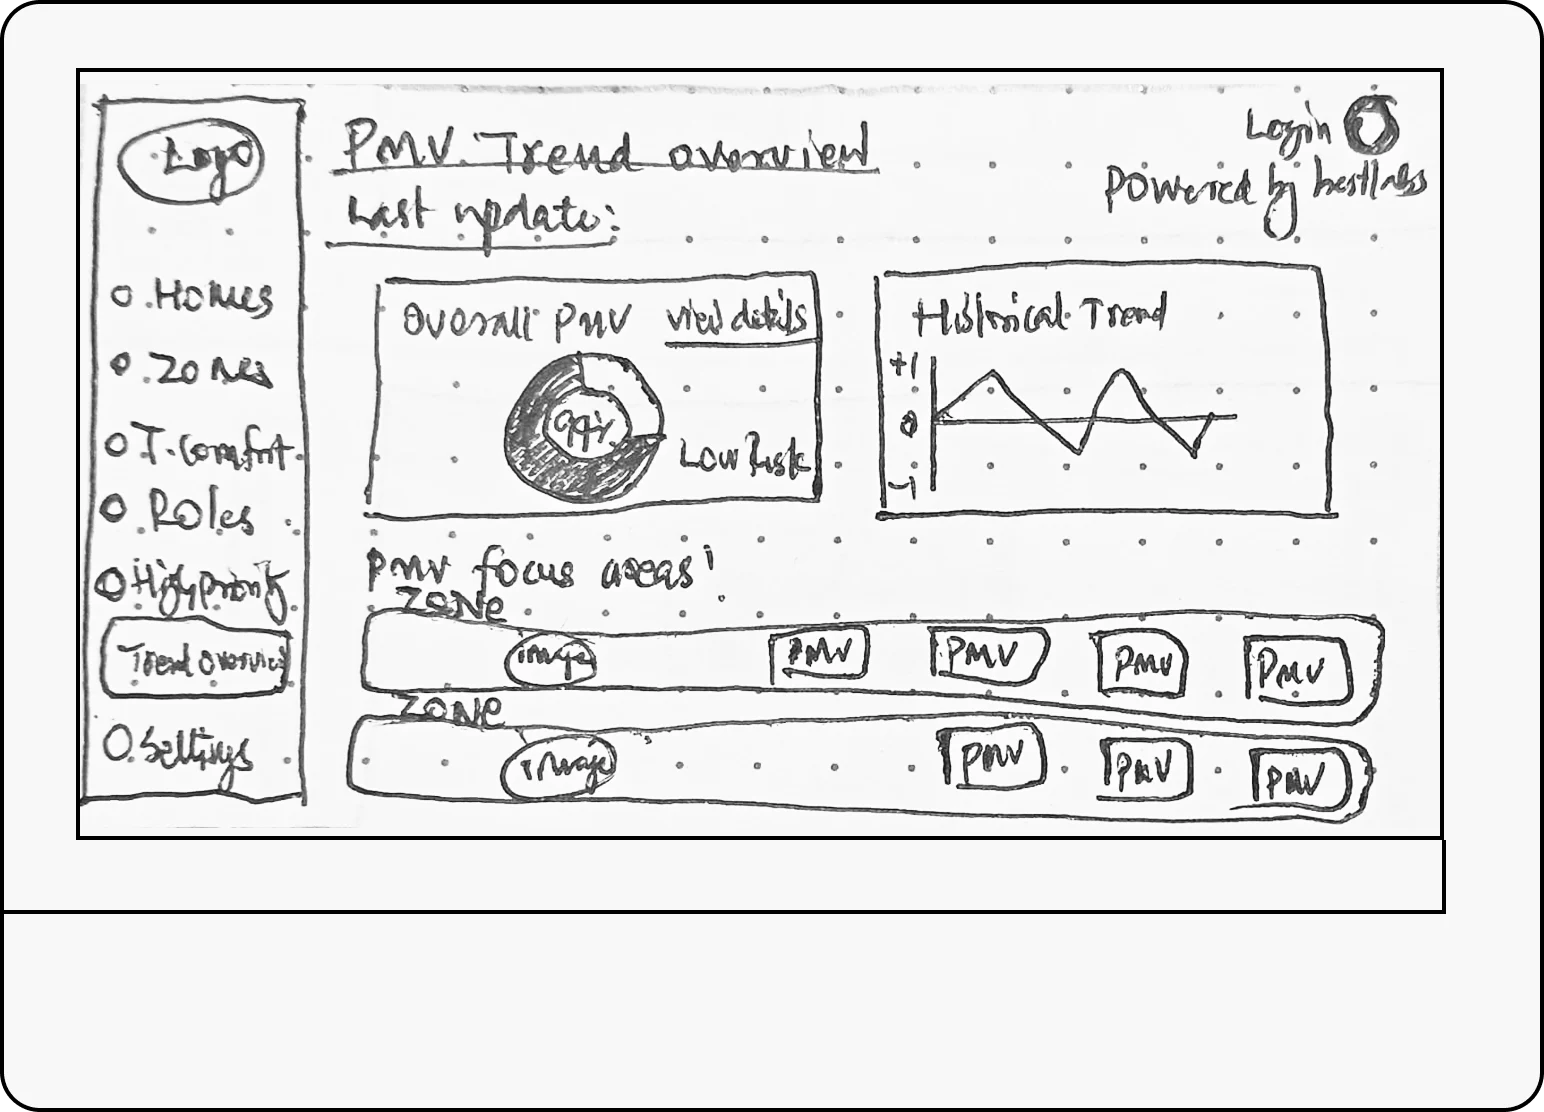 Logo
Homes
Zones
T. Comfort
Roles
High priority
Trend overview
Settings
PMV Trend overview
Last update:
Login
Powered by
Overall PMV
view details
Low Risk
Historical Trend
+1
0
-1
PMV focus areas:
ZONE
image
PMV
PMV
PMV
PMV
ZONE
image
PMV
PMV
PMV